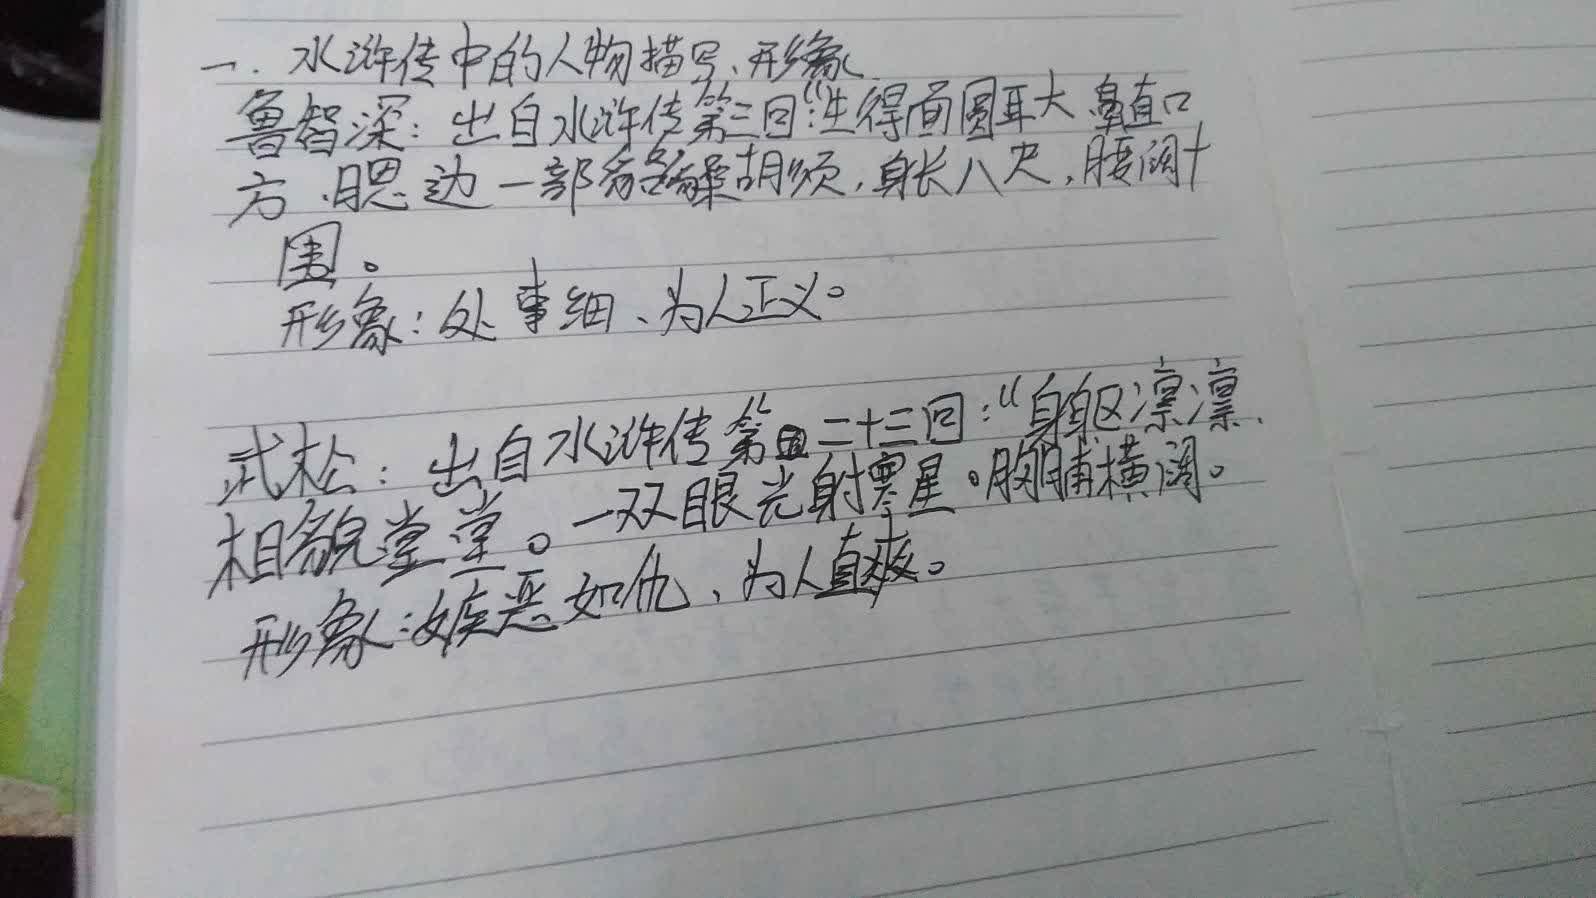 一.水浒传中的人物描写、形象
鲁智深:出自水浒传第三回:“生得面圆耳大鼻直口
方、腮边一部貉𦆯胡须,身长八尺,腰阔十
围。
形象:处事细、为人正义。
武松:出自水浒传第二十三回:“身躯凛凛、
相貌堂堂。一双眼光射寒星。胸脯横阔。
形象:嫉恶如仇、为人直爽。